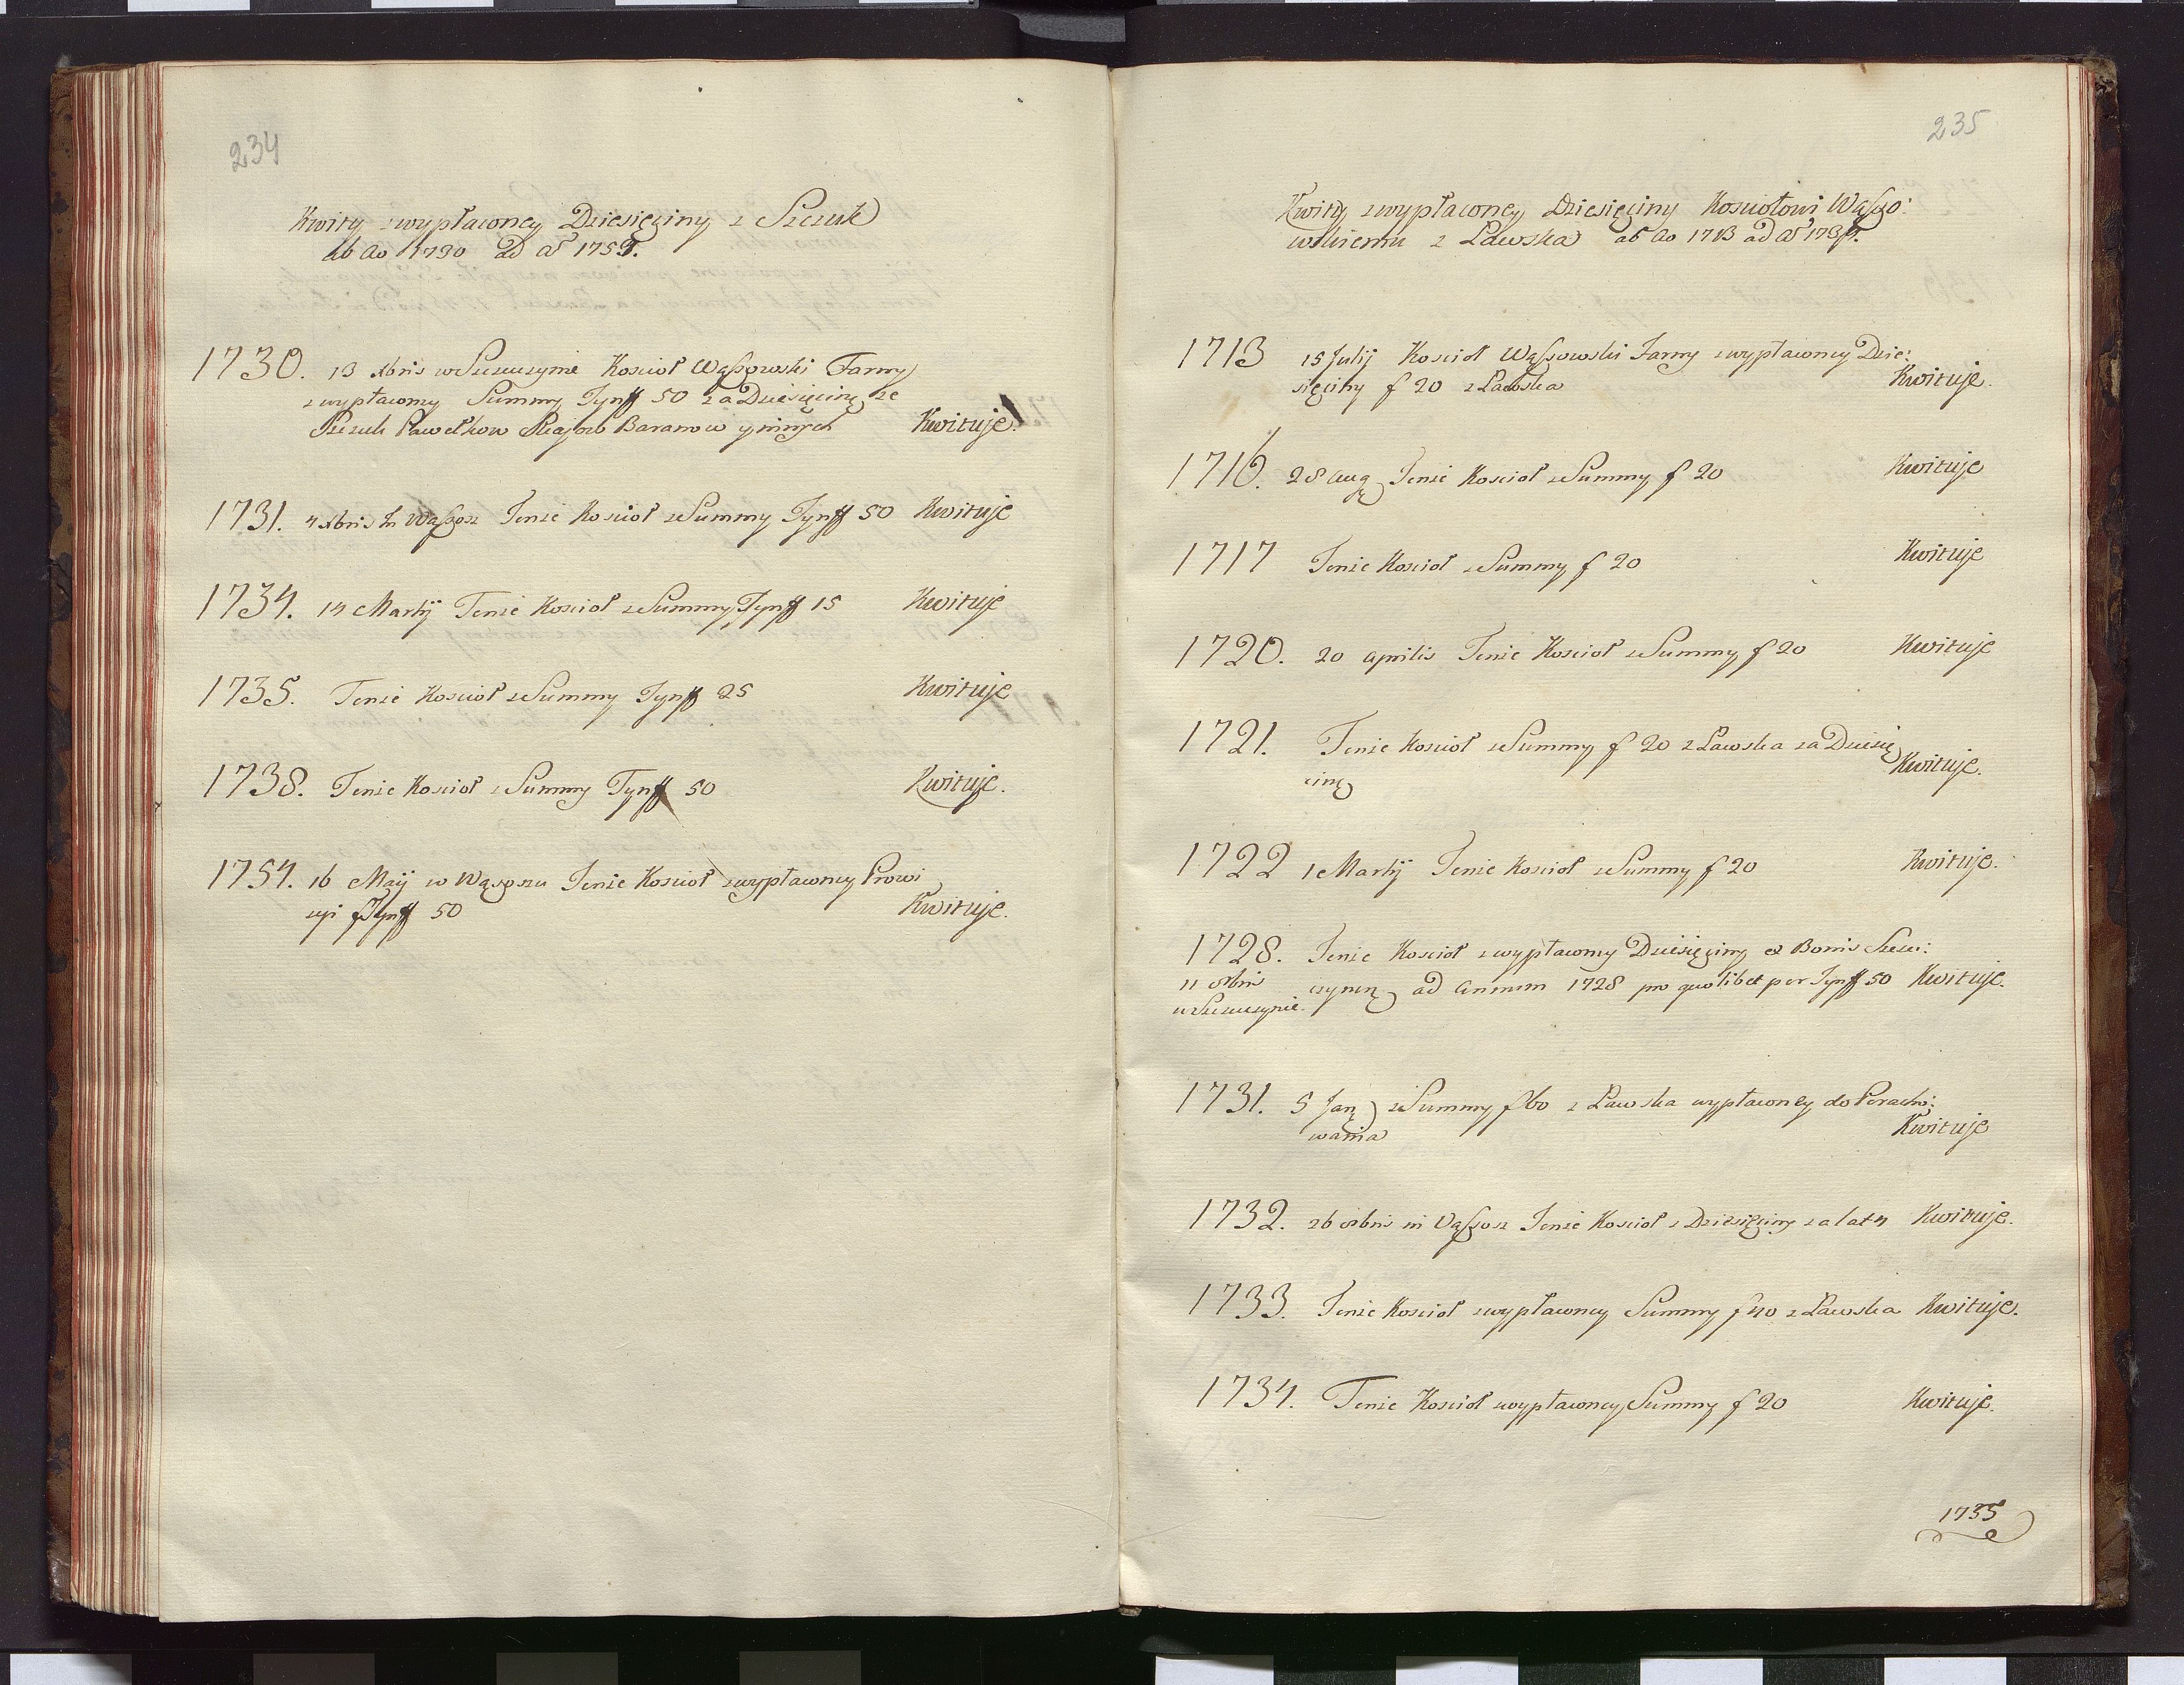 234
Kwity z wypłaconey Dziesięciny z Szczuk
ab Ao 1730 ad Aō 1754.
1730. 13 Xbris w Szczuczynie Kościoł Wąssowski Farny
z wypłaconey Summy Tynff 50 za Dziesięcinę ze
Szczuk Pawełkow Skaje Baranow y innych Kwituje.
1731. 4 Xbris in Wąssosz Tenże Kościoł z Summy Tynff 50 Kwituje
1734. 14 Martij Tenże Kościoł z Summy Tynff 15 Kwituje
1735. Tenże Kościoł z Summy Tynff 25 Kwituje
1738. Tenże Kościoł z Summy Tynff 50 Kwituje.
1754. 16 Maij w Wąsoszu Tenże Kościoł z wypłaconey Prowi
zyi Tynff 50 Kwituje.
235
Kwity z wypłaconey Dziesięciny Kosciołowi Wąsso:
wskiemu z Ławska ab Ao 1713 ad Aō
1713 15 Julij Kościoł Wąssowski Farny z wypłaconey Dzie:
sięciny f 20 z Ławska Kwituje.
1716. 28 Aug Tenże Kościoł z Summy f 20 Kwituje
1717 Tenże Kościoł z Summy f 20 Kwituje
1720. 20 Aprilis Tenże Kościoł z Summy f 20 Kwituje
1721. Tenże Kościoł z Summy f 20 z Ławska za Dziesię
cinę Kwituje.
1722 1 Martij Tenże Kościoł z Summy f 20 Kwituje.
1728. Tenże Kościoł z wypłaconey Dziesięciny ex Bonis Szczu:
11 8bris czynę ad Annum 1728 pro quolibet per Tynff 50 Kwituje.
w Szczuczynie.
1731. 5 Jan z Summy f 60 z Ławska wypłaconey do Poracho:
wania Kwituje
1732. 26 8bris in Wąssosz Tenże Kościoł z Dziesięciny za lat 4 Kwituje.
1733. Tenże Kościoł z wypłaconey Summy f 40 z Ławska Kwituje.
1734. Tenże Kościoł z wypłaconey Summy f 20 Kwituje.
1735